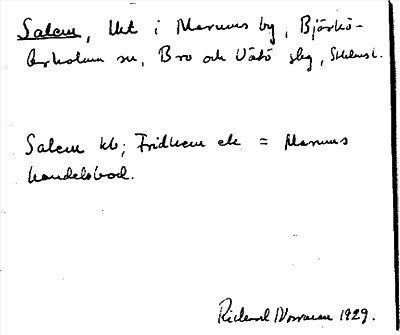 Salem, lht i Marums by, Björkö-
Arholma sn, Bro och Vätö skg, Sthlms l.
Salem kb; Fridhem ek = Marums
handelsbod.
Rickard 1929.